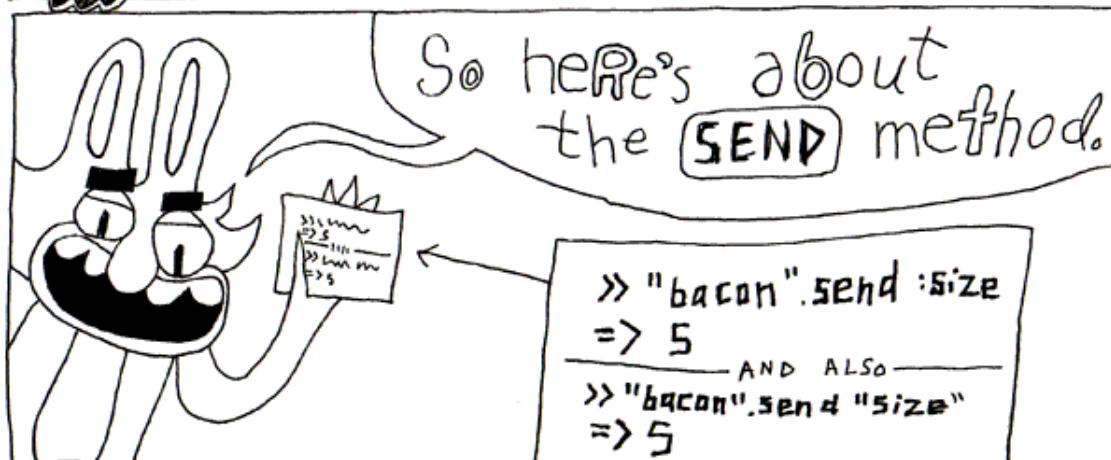 So heRe's about
the SEND method.
>> "bacon".send :size
=> 5
AND ALSO
>> "bacon".send "size"
=> 5